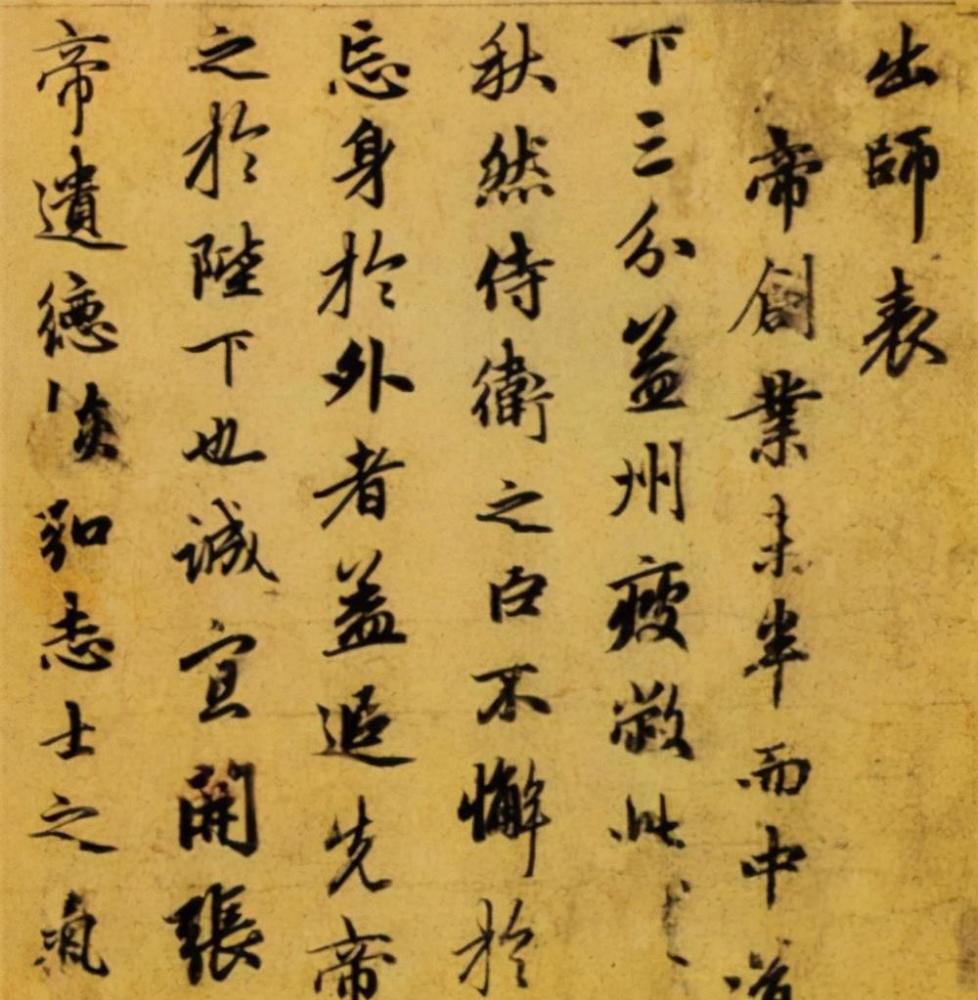 出師表
帝創業未半而中
下三分益州疲敝此
秋然侍衛之臣不懈於
忘身於外者盖追先帝
之於陛下也誠宜開張
帝遺德恢弘志士之氣